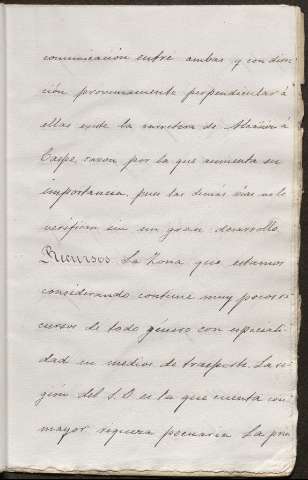 comunicación entre ambas y con direc
ción proximamente perpendicular á
ellas existe la carretera de Alcañiz á
Caspe, razon por la que aumenta su
importancia, pues las demás vias no lo
verifican sin un gran desarrollo.
Recursos. La Zona que estamos
considerando contiene muy pocos re
cursos de todo género con especiali
dad en medios de trasporte. La re
gión del S.O es la que cuenta con
mayor riqueza pecuaria. La pro